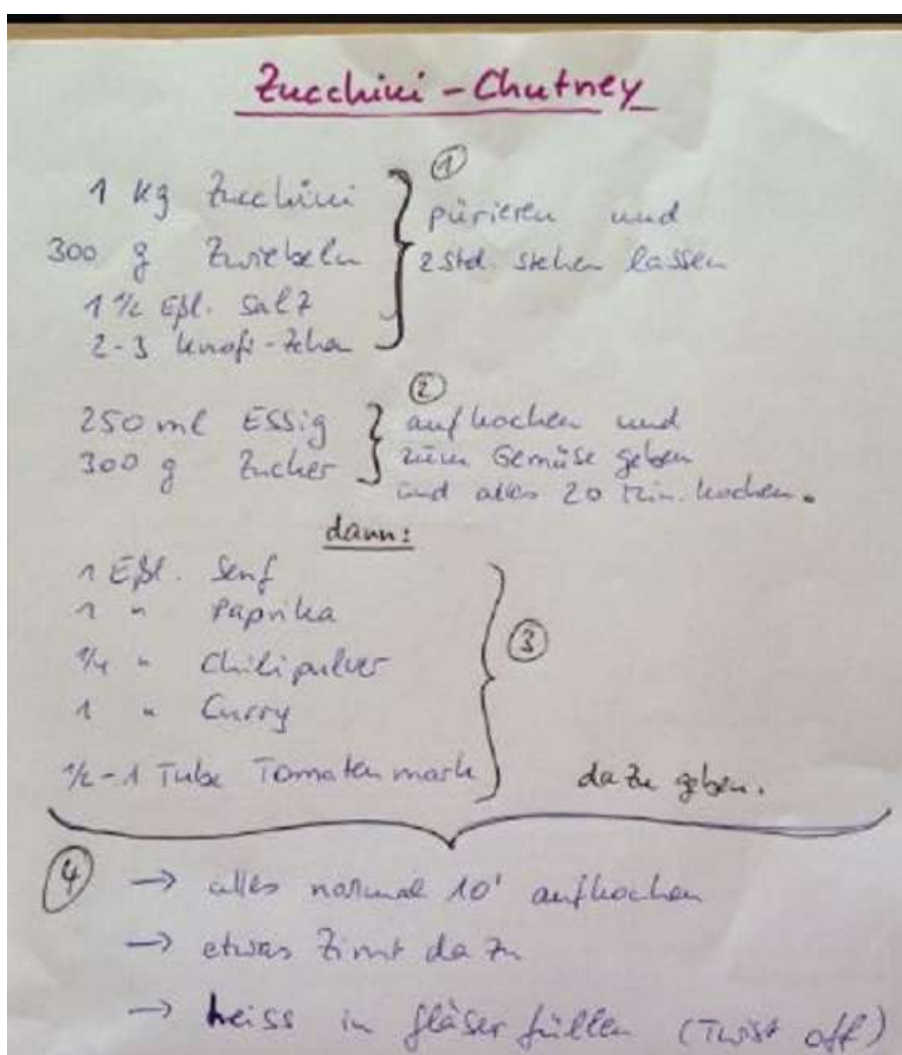 Zucchini-Chutney
1 kg Zucchini
300 g Zwiebeln
1 1/2 Eßl. Salz
2-3 Knofi-Zehen
①
pürieren und
2 Std. stehen lassen
250 ml Essig
300 g Zucker
②
aufkochen und
zum Gemüse geben
und alles 20 Min. kochen.
dann:
1 Eßl. Senf
1 " Paprika
1/4 " Chilipulver
1 " Curry
1/2-1 Tube Tomatenmark
③
dazu geben.
④ → alles nochmal 10' aufkochen
→ etwas Zimt dazu
→ heiss in Gläser füllen (Twist off)